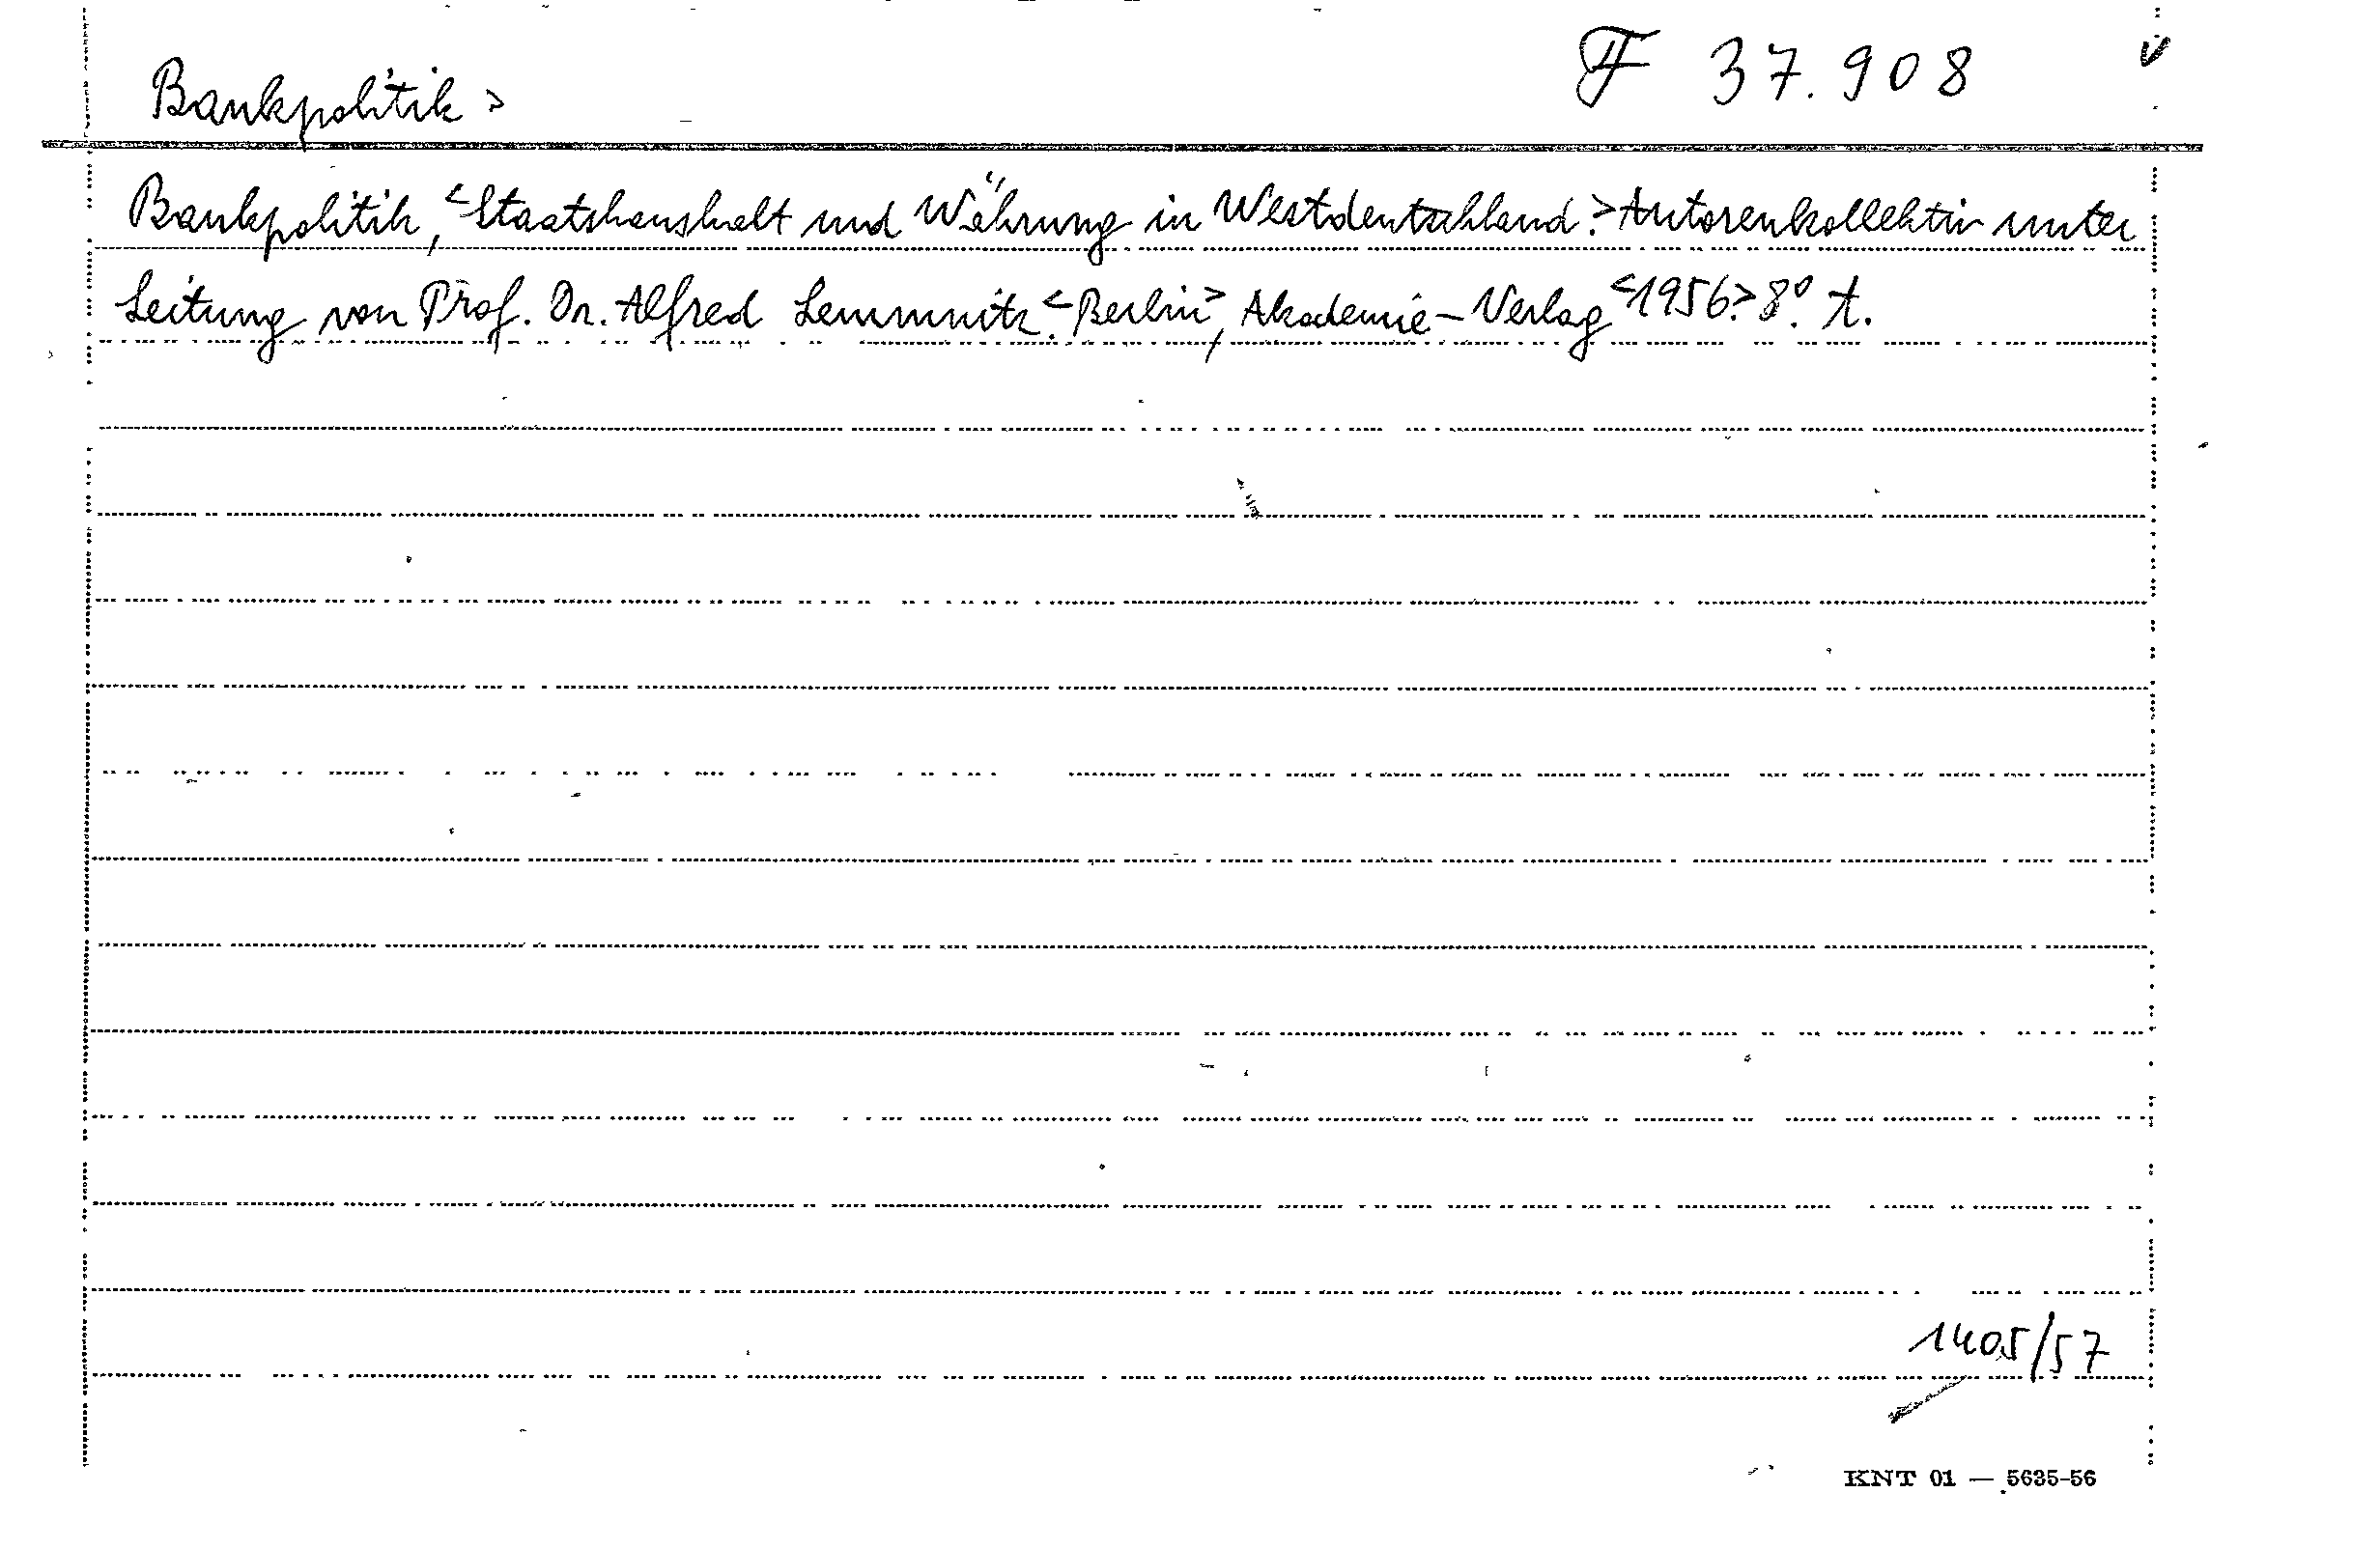 Bankpolitik > F 37.908
Bankpolitik, <Staatshaushalt und Währung in Westdeutschland.> Autorenkollektiv unter
Leitung von Prof. Dr. Alfred Lemmnitz. <Berlin>, Akademie-Verlag <1956.> 8º. t.
1405/57
KNT 01 — 5635-56